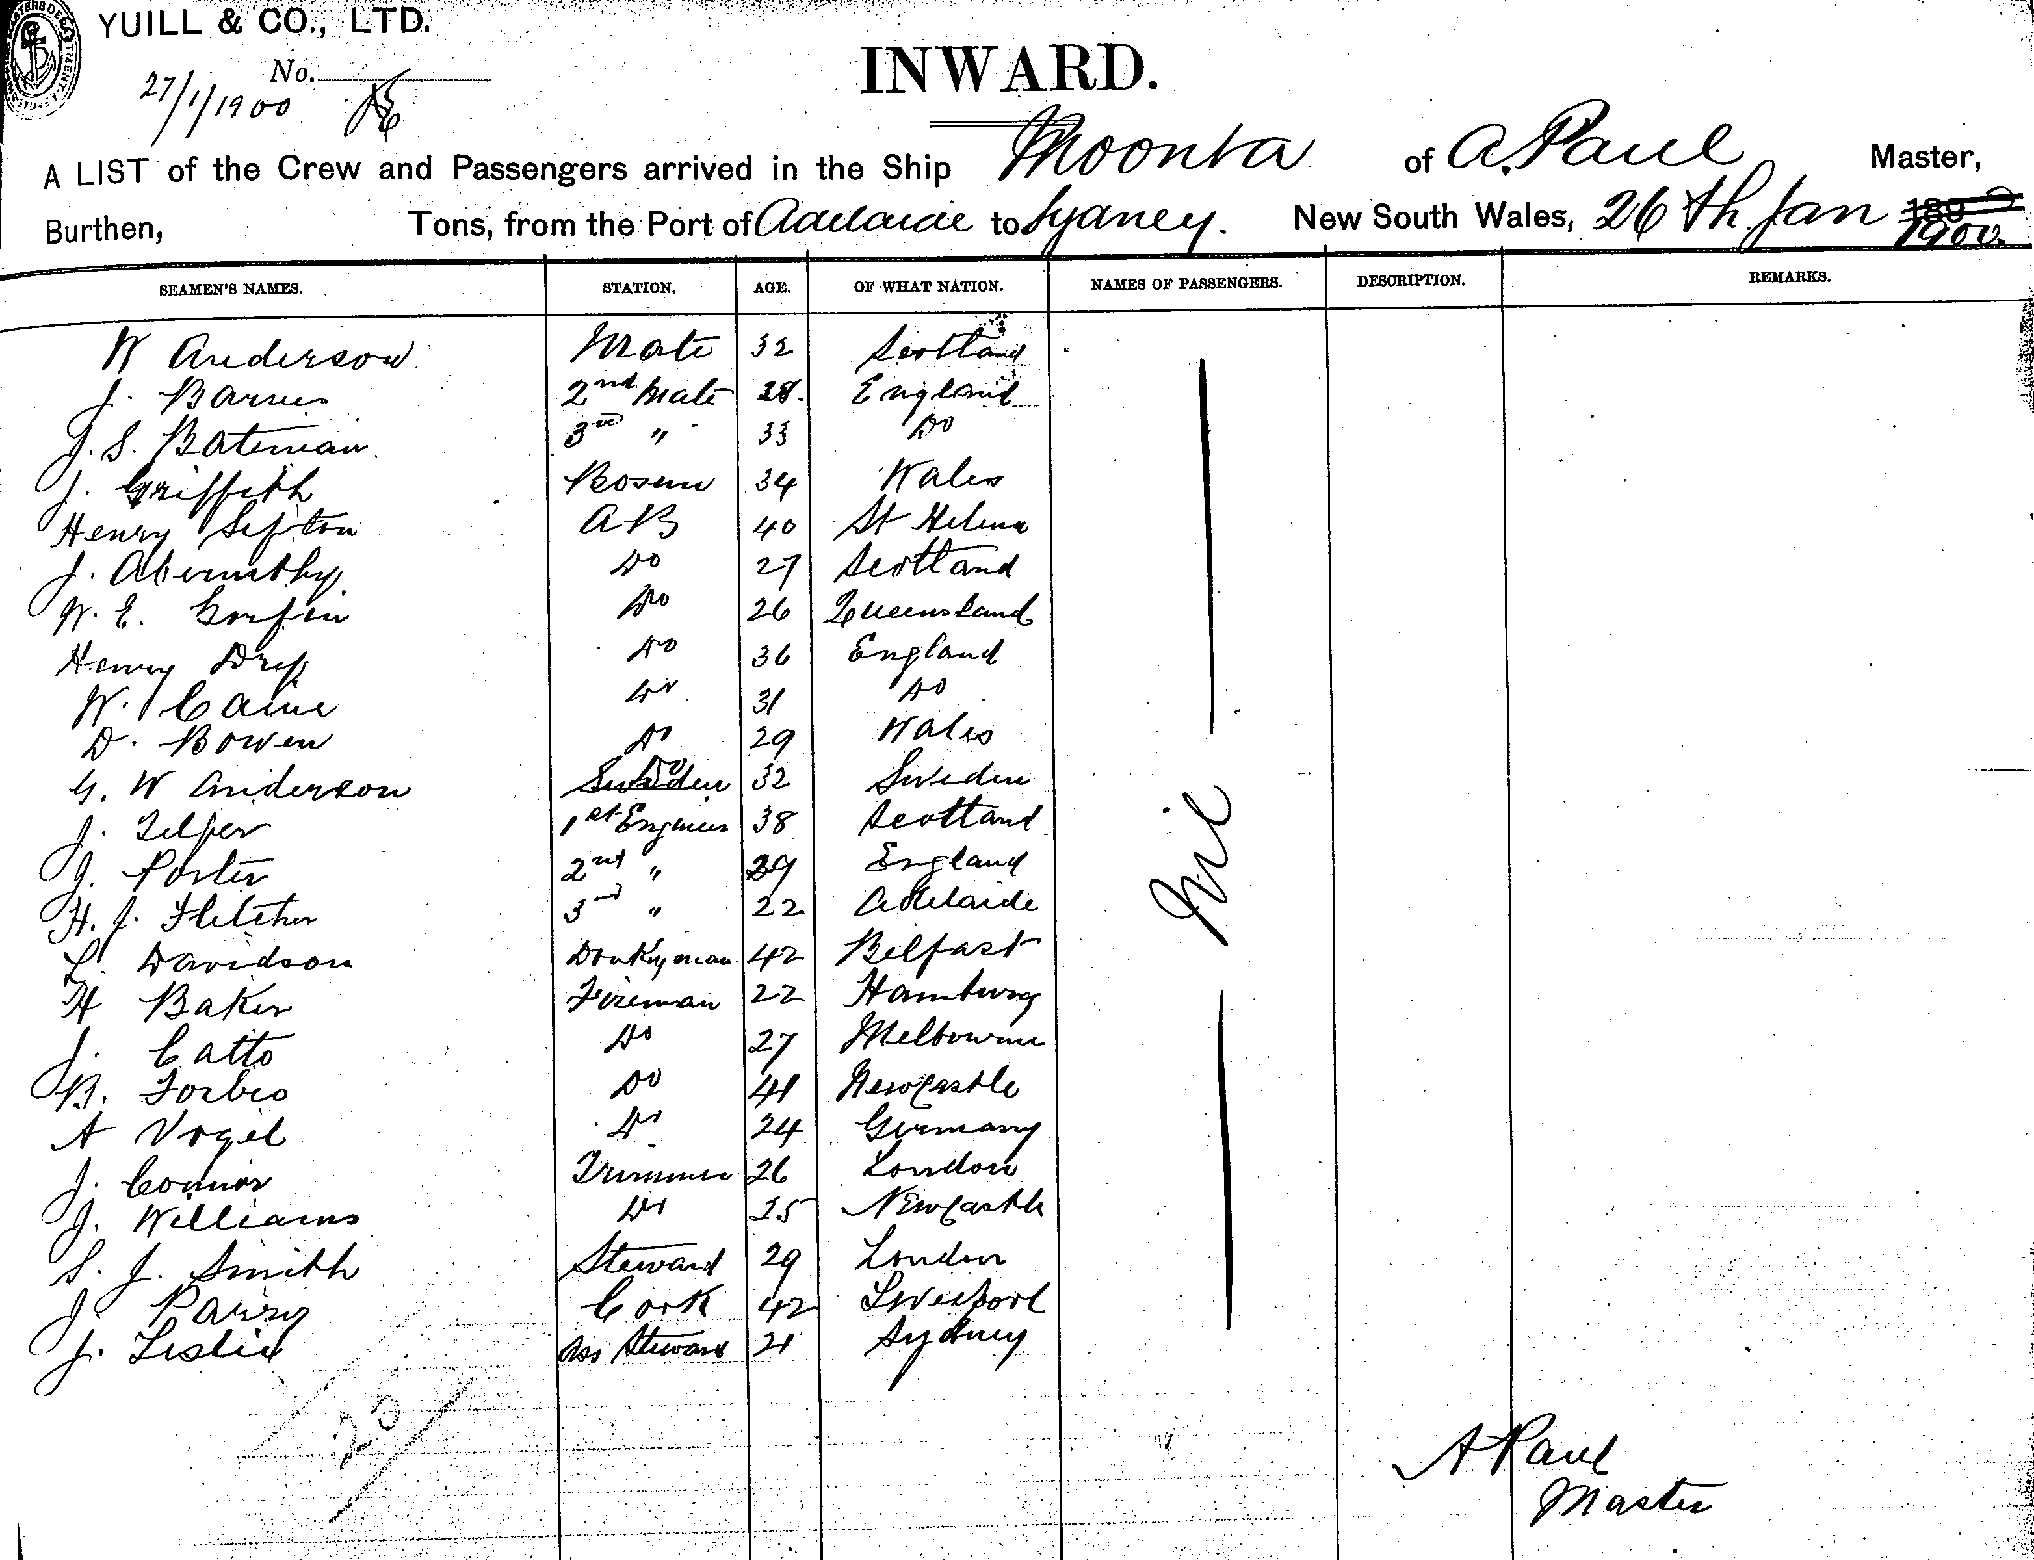 YUILL & CO., LTD.
No.
27/1/1900
INWARD.
A LIST of the Crew and Passengers arrived in the Ship Moonta of A. Paul Master,
Burthen, Tons, from the Port of Adelaide to Sydney. New South Wales, 26th Jan 189 1900.
SEAMEN'S NAMES. STATION. AGE. OF WHAT NATION. NAMES OF PASSENGERS. DESCRIPTION. REMARKS.
W Anderson Mate 32 Scotland
J. Barnes 2nd Mate 28. England
J. S. Bateman 3rd " 33 Do
J. Griffith Bosun 34 Wales
Henry Sefton AB 40 St Helena
J. Abernethy Do 27 Scotland
W. E. Gorfin Do 26 Queensland
Henry Do 36 England
W. Caine Do 31 Do
D. Bowen Do 29 Wales
G. W Anderson Sweden Do 32 Sweden
J. Telfer 1st Engineer 38 Scotland
J. Porter 2nd " 29 England
H. J. Fletcher 3rd " 22 Adelaide
L. Davidson Donkeyman 42 Belfast
H Baker Fireman 22 Hamburg
J. Catto Do 27 Melbourne
B. Forbes Do 41 Newcastle
A Vogel Do 24 Germany
J. Connor Trimmer 26 London
J. Williams Do 25 Newcastle
S. J. Smith Steward 29 London
J. Parry Cook 42 Liverpool
J. Leslie Ass Steward 21 Sydney
Nil
25
A Paul
Master